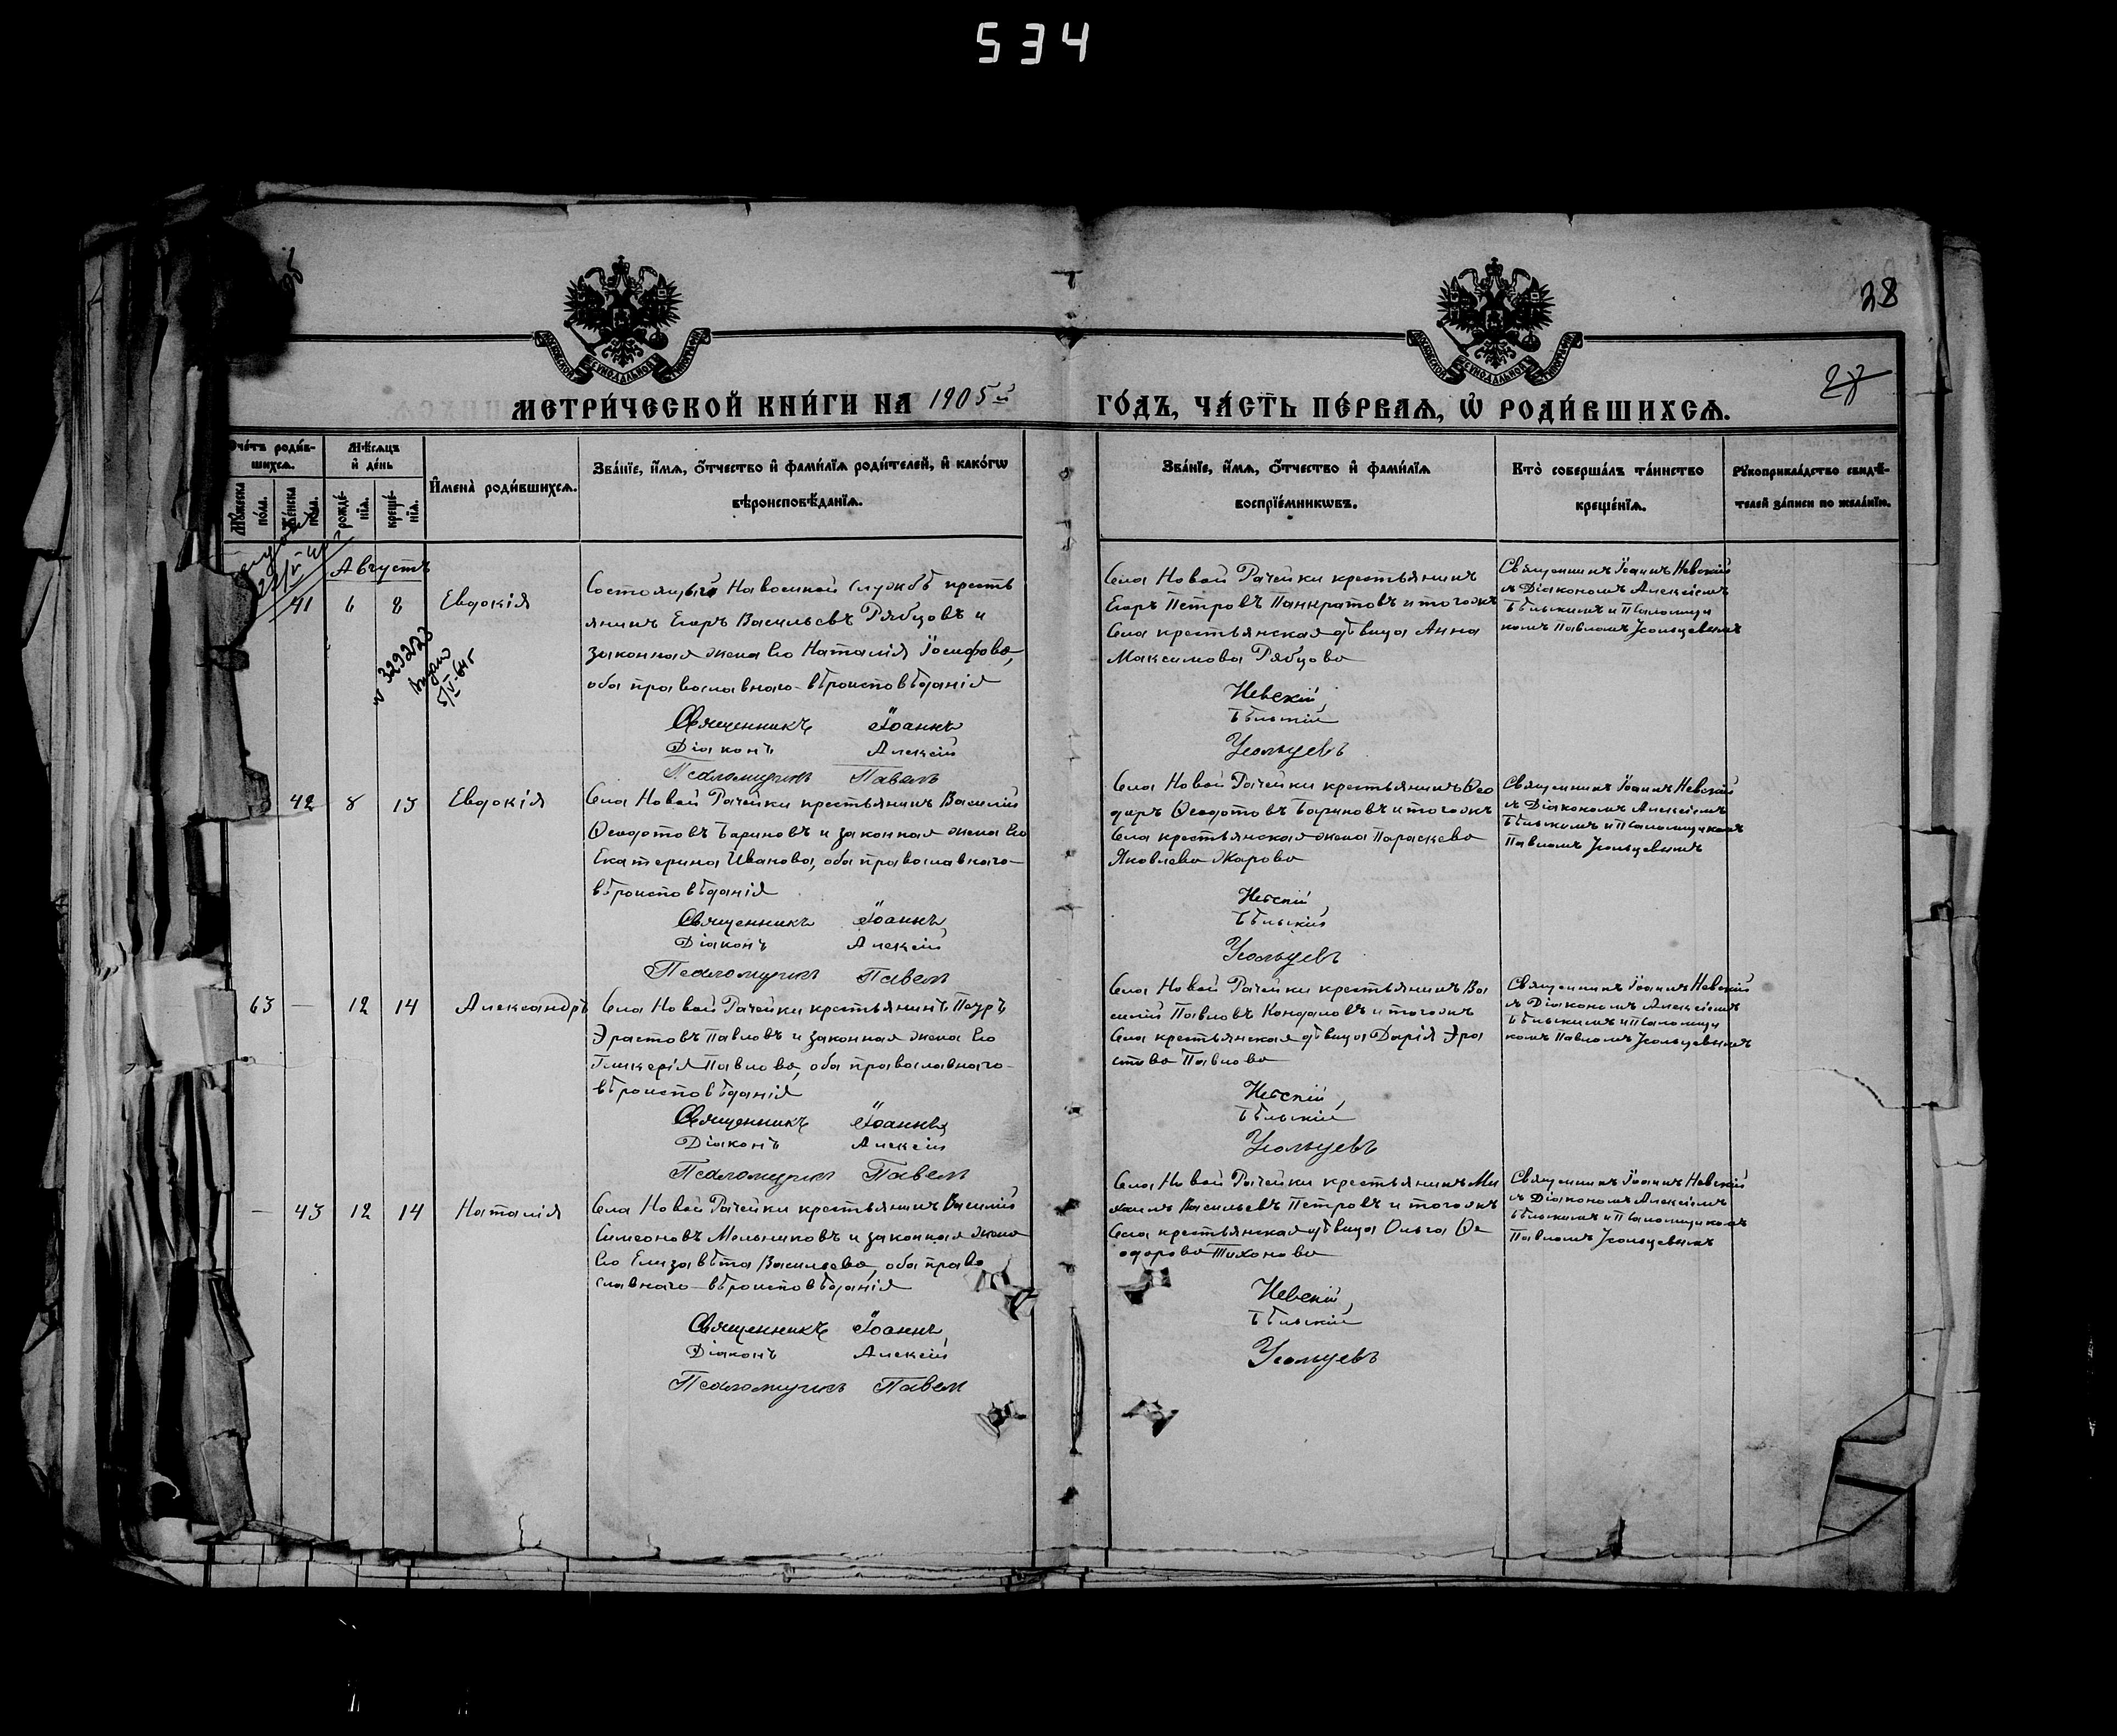 534
28
27
МОСКОВСКОЙ СѴНОДАЛЬНОЙ ТИПОГРАФІИ
МОСКОВСКОЙ СѴНОДАЛЬНОЙ ТИПОГРАФІИ
МЕТРИ́ЧЕСКОЙ КНИ́ГИ НА 1905й ГО́ДЪ, ЧА́СТЬ ПЕ́РВАѦ, Ѡ҆ РОДИ́ВШИХСѦ.
Счетъ роди́в-
шихсѧ.
Мѣ́сѧцъ
и҆ де́нь
Мꙋ́жеска
по́ла.
Же́нска
по́ла.
рожде́-
нїѧ.
креще́-
нїѧ.
И҆мена̀ роди́вшихсѧ.
Зва́нїе, и҆́мѧ, ѻ҆́тчество и҆ фами́лїѧ роди́телей, и҆ како́гѡ
вѣроисповѣ́данїѧ.
Зва́нїе, и҆́мѧ, ѻ҆́тчество и҆ фами́лїѧ
воспрїе́мникѡвъ.
Кто̀ соверша́лъ та́инство
креще́нїѧ.
Рꙋкоприкла́дство свидѣ́-
телей за́писи по жела́нїю.
Августъ
41 6 8 Евдокія
Состоящій На военной службѣ кресть
янинъ Егоръ Васильевъ Рябцовъ и
законная жена Его Наталія Іосифова,
оба православнаго вѣроисповѣданія
Священникъ Іоаннъ
Діаконъ Алексій
Псаломщикъ Павелъ
Села Новой Рачейки крестьянинъ
Егоръ Петровъ Панкратовъ и тогожъ
Села крестьянская дѣвица Анна
Максимова Рябцова
Невскій,
Бѣльскій
Усольцевъ
Священникъ Іоаннъ Невскій
съ Діакономъ Алексіемъ
Бѣльскимъ и Псаломщи
комъ Павломъ Усольцевымъ
№ 3292023
выдано
5/V-64 г
42 8 13 Евдокія
Села Новой Рачейки крестьянинъ Василій
Ѳеодотовъ Бариновъ и законная жена Его
Екатерина Иванова, оба православнаго
вѣроисповѣданія
Священникъ Іоаннъ
Діаконъ Алексій
Псаломщикъ Павелъ
Села Новой Рачейки крестьянинъ Ѳео
доръ Ѳеодотовъ Бариновъ и тогожъ
Села крестьянская жена Параскева
Яковлева Жарова
Невскій,
Бѣльскій
Усольцевъ
Священникъ Іоаннъ Невскій
съ Діакономъ Алексіемъ
Бѣльскимъ и Псаломщикомъ
Павломъ Усольцевымъ
63 — 12 14 Александръ
Села Новой Рачейки крестьянинъ Петръ
Эрастовъ Павловъ и законная жена Его
Гликерія Павлова, оба православнаго
вѣроисповѣданія
Священникъ Іоаннъ
Діаконъ Алексій
Псаломщикъ Павелъ
Села Новой Рачейки крестьянинъ Ва
силій Павловъ Кондаловъ и тогожъ
Села крестьянская дѣвица Дарія Эра
стова Павлова
Невскій,
Бѣльскій
Усольцевъ
Священникъ Іоаннъ Невскій
съ Діакономъ Алексіемъ
Бѣльскимъ и Псаломщи
комъ Павломъ Усольцевымъ
— 43 12 14 Наталія
Села Новой Рачейки крестьянинъ Василій
Симеоновъ Мельниковъ и законная жена
Его Елизавѣта Васильева, оба право
славнаго вѣроисповѣданія
Священникъ Іоаннъ
Діаконъ Алексій
Псаломщикъ Павелъ
Села Новой Рачейки крестьянинъ Ми
хаилъ Васильевъ Петровъ и тогожъ
Села крестьянская дѣвица Ольга Ѳе
одорова Тихонова
Невскій,
Бѣльскій
Усольцевъ
Священникъ Іоаннъ Невскій
съ Діакономъ Алексіемъ
Бѣльскимъ и Псаломщикомъ
Павломъ Усольцевымъ